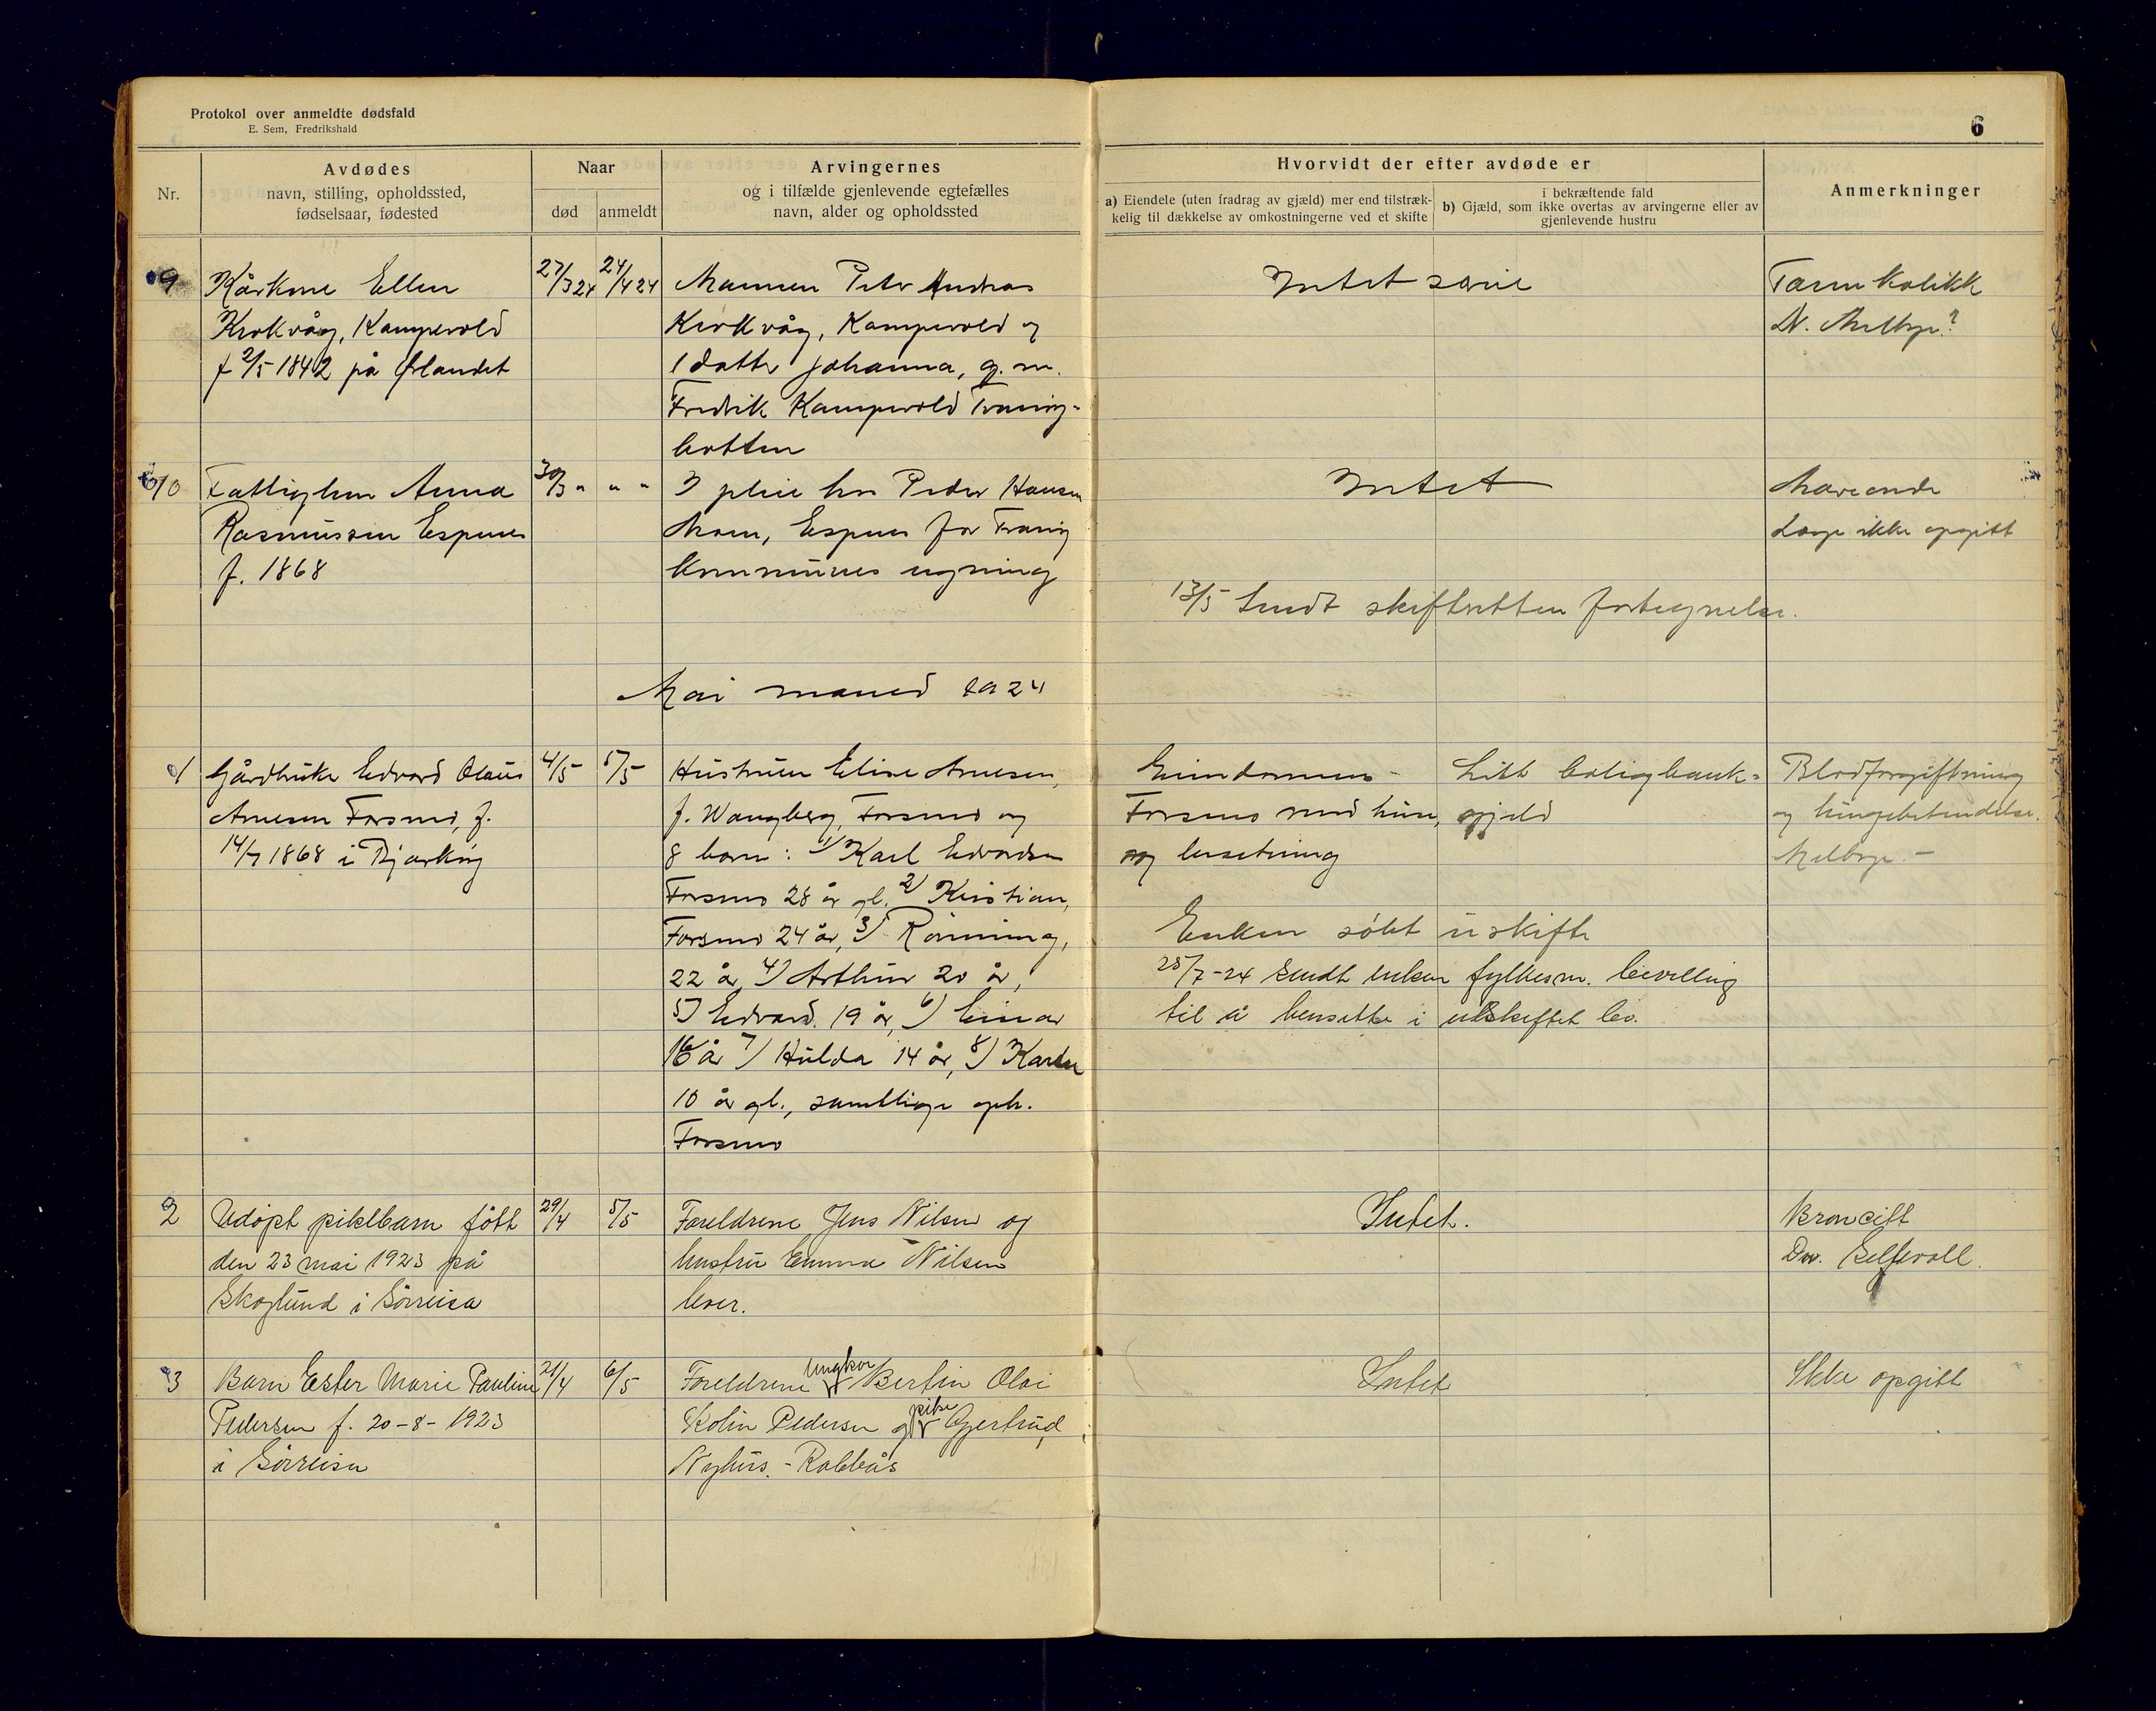 Protokol over anmeldte dødsfald
E. Sem, Fredrikshald
6
Nr.
Avdødes
navn, stilling, opholdssted,
fødselsaar, fødested
Naar
død
anmeldt
Arvingernes
og i tilfælde gjenlevende egtefælles
navn, alder og opholdssted
Hvorvidt der efter avdøde er
a) Eiendele (uten fradrag av gjæld) mer end tilstræk-
kelig til dækkelse av omkostningerne ved et skifte
i bekræftende fald
b) Gjæld, som ikke overtas av arvingerne eller av
gjenlevende hustru
Anmerkninger
9
Kårkone Ellen
Krokvåg, Kampevold
f 2/5 1842 på Ørlandet
27/3 24
24/4 24
Mannen Peter Andreas
Krokvåg, Kampevold og
1 datter Johanna, g. m.
Fredrik Kampevold Traning-
botten
Intet
Tarmkolikk
N. Melbye?
10
Fattiglem Anna
Rasmussen Espenes
f. 1868
30/3 "
" "
I pleie hos Peder Hansen
Moen, Espenes for Traning
kommunes regning
Intet
Maveonde
Læge ikke opgitt
13/5 Sendt skifteretten fortegnelse.
Mai maned 1924
1
Gårdbruker Edvard Olaus
Arnesen Forsmo, f.
14/7 1868 i Bjarkøy
4/5
5/5
Hustruen Elise Arnesen,
f. Wangberg, Forsmo og
8 barn: 1) Karl Edvardsen
Forsmo 28 år gl. 2) Kristian,
Forsmo 24 år, 3) Rønning,
22 år, 4) Arthur 20 år,
5) Edvard 19 år, 6) Einar
16 år 7) Hulda 14 år, 8) Karen
10 år gl., samtlige oph.
Forsmo
Eiendommen
Forsmo med huse,
og besetning
Litt boligbank-
gjeld
Blodforgiftning
og lungebetendelse.
Melbye. -
Enken søkt uskifte
25/7-24 sendt enken fylkesm. bevilling
til å hensitte i uskiftet bo.
2
Udøpt pikebarn født
den 23 mai 1923 på
Skoglund i Sørreisa
29/4
5/5
Foreldrene Jens Nilsen og
hustru Emma Nilsen
lever.
Intet.
Broncitt
Dr. Gelfevoll.
3
Barn Ester Marie Pauline
Pedersen f. 20-8-1923
i Sørreisa
21/4
6/5
Foreldrene ungkar Bertin Olai
Kolin Pedersen og pike Gjertrud
Nyhus. - Rabbås
Intet
Ikke opgitt